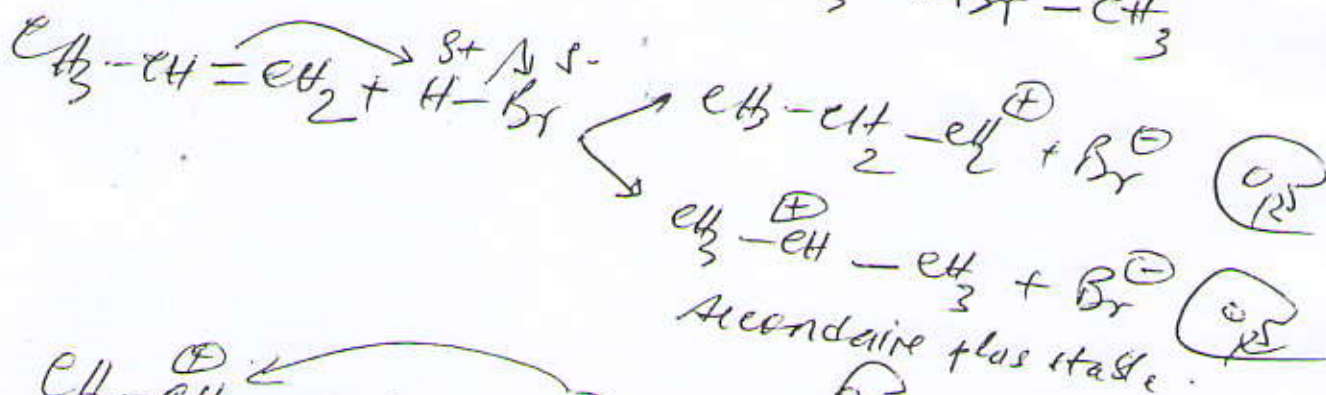 Br – CH3
CH3–CH=CH2 + H–Br δ+ δ-
CH3–CH2–CH2⊕ + Br⊖ 0,25
CH3–CH⊕–CH3 + Br⊖ 0,25
secondaire plus stable.
CH CH ⊕